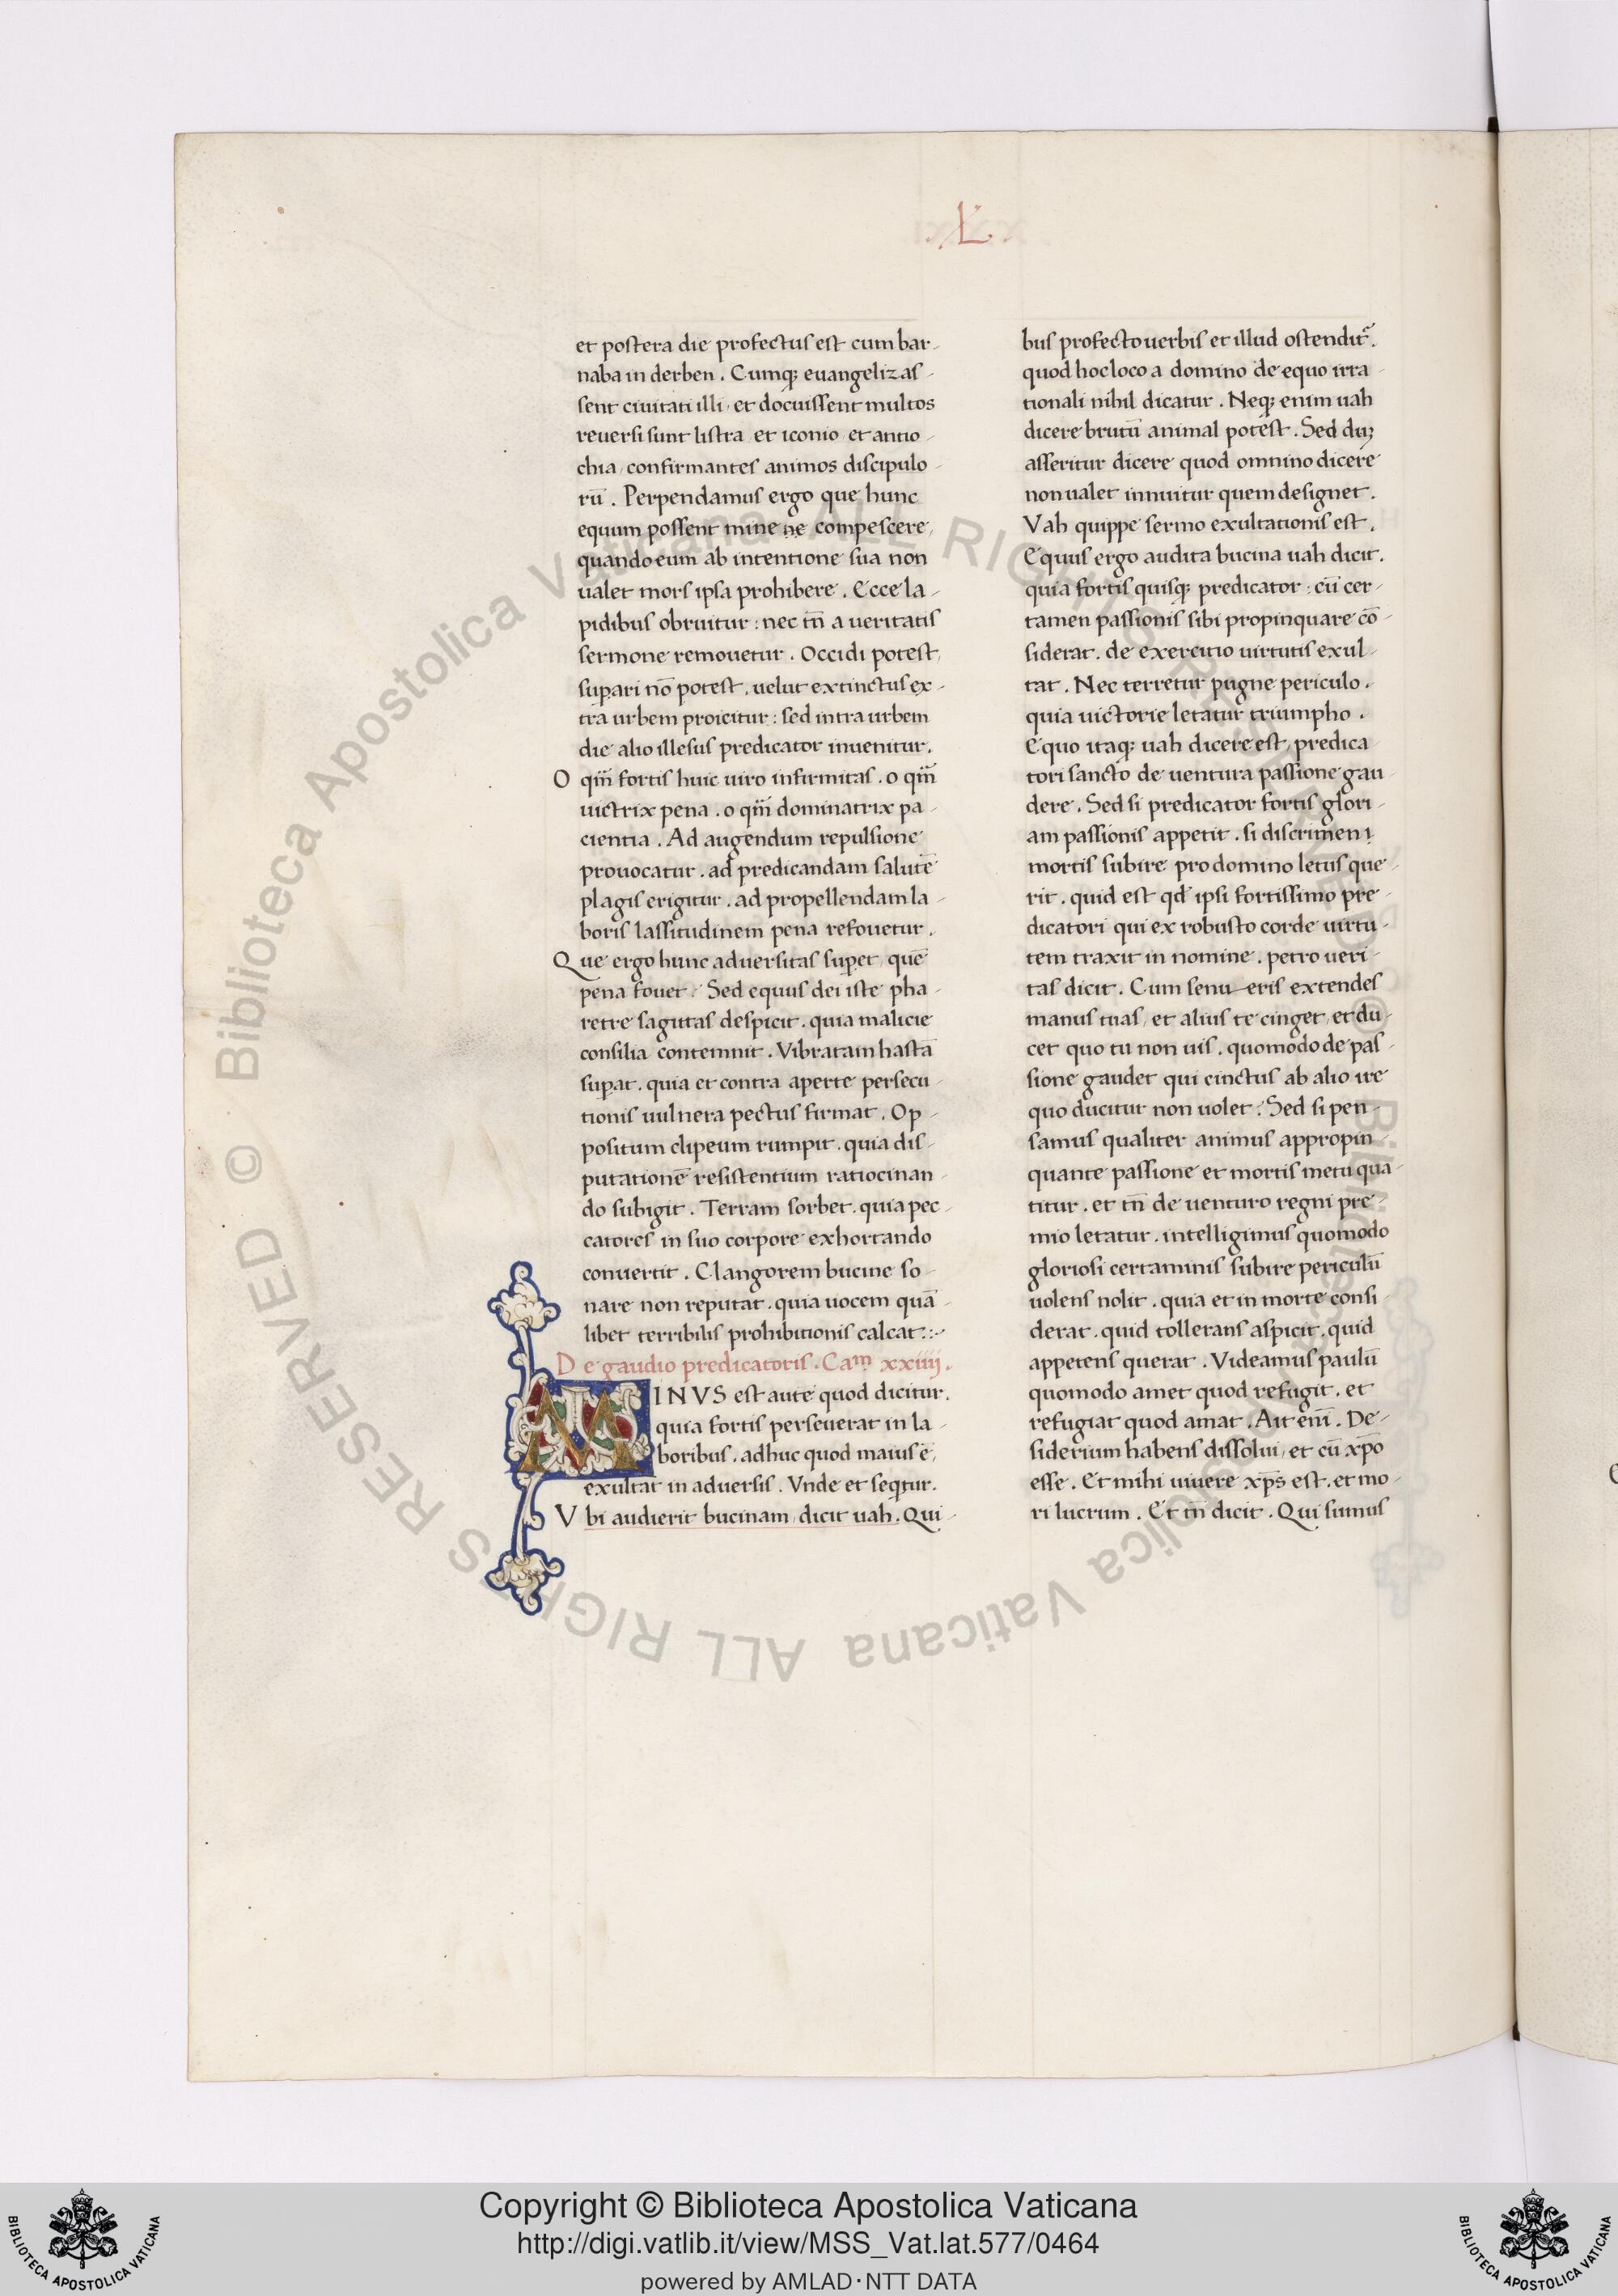 L.
et postera die profectus est cum bar-
naba in derben. Cumq; euangelizas-
sent ciuitati illi, et docuissent multos
reuersi sunt listra et iconio et antio-
chia, confirmantes animos discipulo-
rū. Perpendamus ergo que hunc
equum possent mine ne compescere,
quando eum ab intentione sua non
ualet mors ipsa prohibere. Ecce la-
pidibus obruitur: nec tn̄ a ueritatis
sermone remouetur. Occidi potest,
suꝑari nō potest. uelut extinctus ex-
tra urbem proicitur: sed intra urbem
die alio illesus predicator inuenitur.
O qm̄ fortis huic uiro infirmitas. o qm̄
uictrix pena. o qm̄ dominatrix pa-
cientia. Ad augendum repulsione
prouocatur. ad predicandam salutē
plagis erigitur. ad propellendam la-
boris lassitudinem pena refouetur.
Que ergo hunc aduersitas suꝑet, quē
pena fouet. Sed equus dei iste pha-
retre sagittas despicit. quia malicie
consilia contemnit. Vibratam hastā
suꝑat. quia et contra aperte persecu-
tionis uulnera pectus firmat. Op-
positum clipeum rumpit. quia dis-
putationē resistentium ratiocinan-
do subigit. Terram sorbet. quia pec-
catores in suo corpore exhortando
conuertit. Clangorem bucine so-
nare non reputat. quia uocem quā-
libet terribilis prohibitionis calcat:-
De gaudio predicatoris. Cam xxiiij.
MINVS est autē quod dicitur.
quia fortis perseuerat in la-
boribus. adhuc quod maius ē,
exultat in aduersis. Vnde et seqtur.
Vbi audierit bucinam, dicit uah. Qui-
bus profecto uerbis et illud ostendit.
quod hoc loco a domino de equo irra-
tionali nihil dicatur. Neq; enim uah
dicere brutū animal potest. Sed dū;
asseritur dicere quod omnino dicere
non ualet innuitur quem designet.
Vah quippe sermo exultationis est.
Equus ergo audita bucina uah dicit.
quia fortis quisq; predicator: cū cer-
tamen passionis sibi propinquare cō-
siderat. de exercitio uirtutis exul-
tat. Nec terretur pugne periculo.
quia uictorie letatur triumpho.
Equo itaq; uah dicere est, predica
tori sancto de uentura passione gau-
dere. Sed si predicator fortis glori-
am passionis appetit. si discrimen
mortis subire pro domino letus que-
rit. quid est qd ipsi fortissimo pre-
dicatori qui ex robusto corde uirtu-
tem traxit in nomine. petro ueri-
tas dicit. Cum senueris extendes
manus tuas, et alius te cinget, et du-
cet quo tu non uis. quomodo de pas-
sione gaudet qui cinctus ab alio ire
quo ducitur non uolet. Sed si pen-
samus qualiter animus appropin-
quante passione et mortis metu qua-
titur. et tn̄ de uenturo regni pre-
mio letatur. intelligimus quomodo
gloriosi certaminis subire periculū
uolens nolit. quia et in morte consi-
derat. quid tollerans aspicit. quid
appetens querat. Videamus paulū
quomodo amet quod refugit. et
refugiat quod amat. Ait enī. De-
siderium habens dissolui, et cū xp̄o
esse. Et mihi uiuere xp̄s est. et mo-
ri lucrum. Et tn̄ dicit. Qui sumus
© Biblioteca Apostolica Vaticana ALL RIGHTS RESERVED © Biblioteca Apostolica Vaticana ALL RIGHTS RESERVED
BIBLIOTECA APOSTOLICA VATICANA
Copyright © Biblioteca Apostolica Vaticana
http://digi.vatlib.it/view/MSS_Vat.lat.577/0464
powered by AMLAD·NTT DATA
BIBLIOTECA APOSTOLICA VATICANA